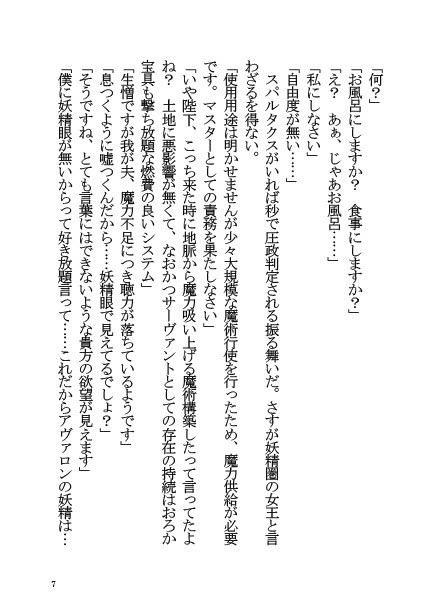 「何？」
「お風呂にしますか？　食事にしますか？」
「え？　あぁ、じゃあお風呂……」
「私にしなさい」
「自由度が無い……」
　スパルタクスがいれば秒で圧政判定される振る舞いだ。さすが妖精圏の女王と言
わざるを得ない。
「使用用途は明かせませんが少々大規模な魔術行使を行ったため、魔力供給が必要
です。マスターとしての責務を果たしなさい」
「いや陛下、こっち来た時に地脈から魔力吸い上げる魔術構築したって言ってたよ
ね？　土地に悪影響が無くて、なおかつサーヴァントとしての存在の持続はおろか
宝具も撃ち放題な燃費の良いシステム」
「生憎ですが我が夫、魔力不足につき聴力が落ちているようです」
「息つくように嘘つくんだから……妖精眼で見えてるでしょ？」
「そうですね、とても言葉にはできないような貴方の欲望が見えます」
「僕に妖精眼が無いからって好き放題言って……これだからアヴァロンの妖精は…
7